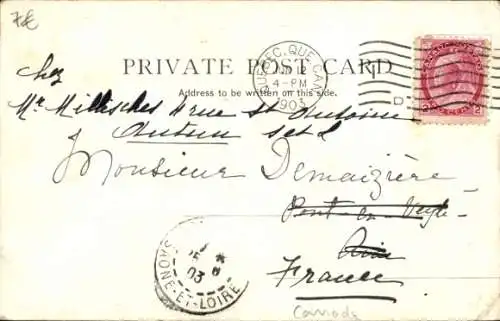 7€
QUEBEC, QUE. CAN.
4-PM
1903
D
PRIVATE POST CARD
Address to be written on this side.
chez
Mr 4 rue St Antoine
Autun
Monsieur Demaizière
Pont-de-Veyle
Ain
France
Canada
03
SAONE-ET-LOIRE